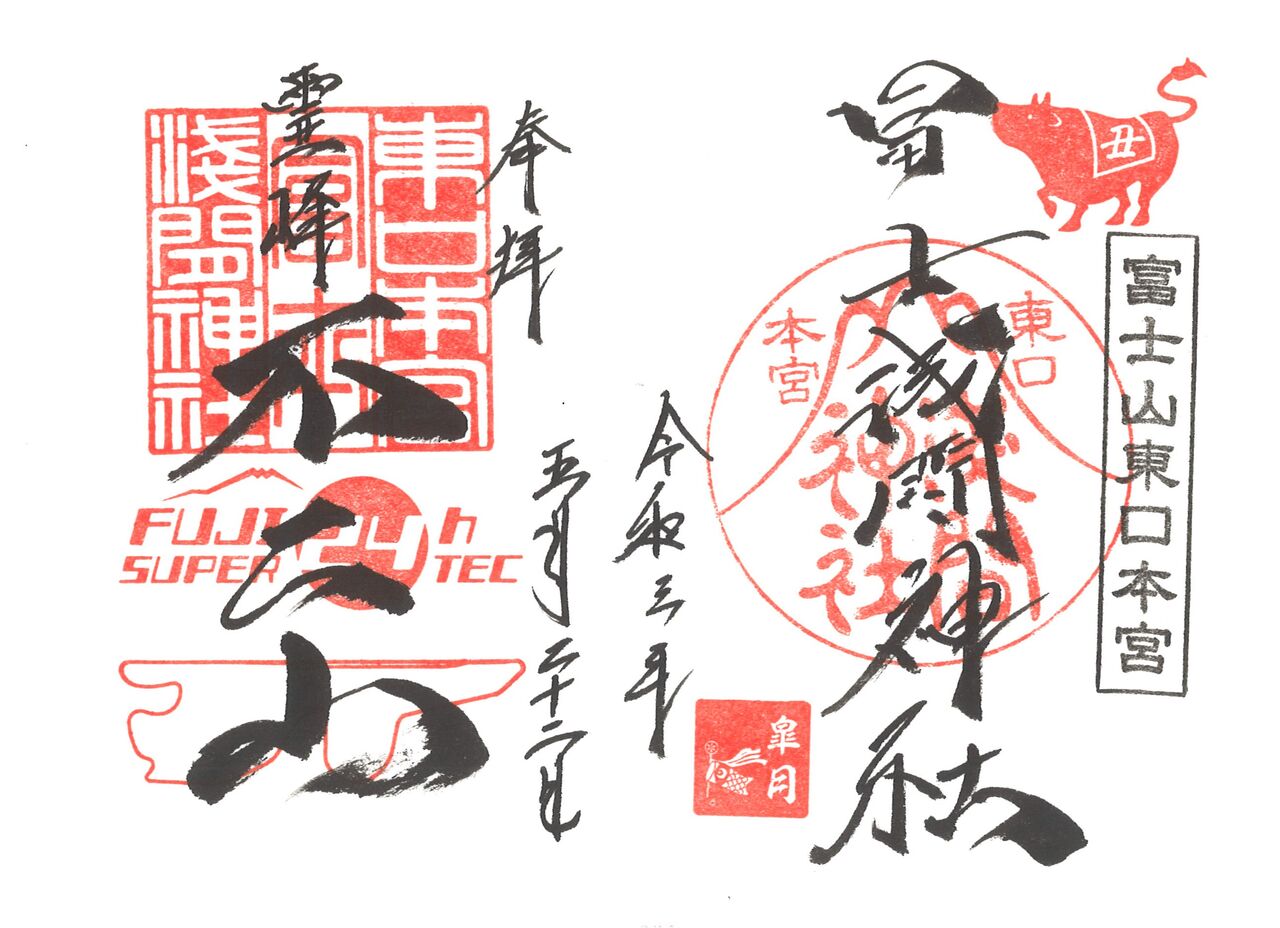 丑
富士山東口本宮
冨士浅間神社
東口
本宮
神社
皐月
令和三年
五月二十二日
奉拝
東口本宮
冨士
淺間神社
靈峰
不二山
FUJI 24h
SUPER TEC